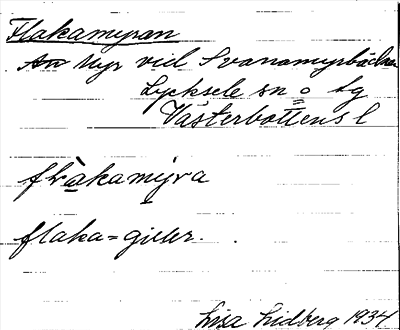 Flakamyran
An Myr vid Svanamyrbäcken
Lycksele sn o lg
Västerbottens l
flakamyra
flaka = giller.
Lisa Lidberg 1934